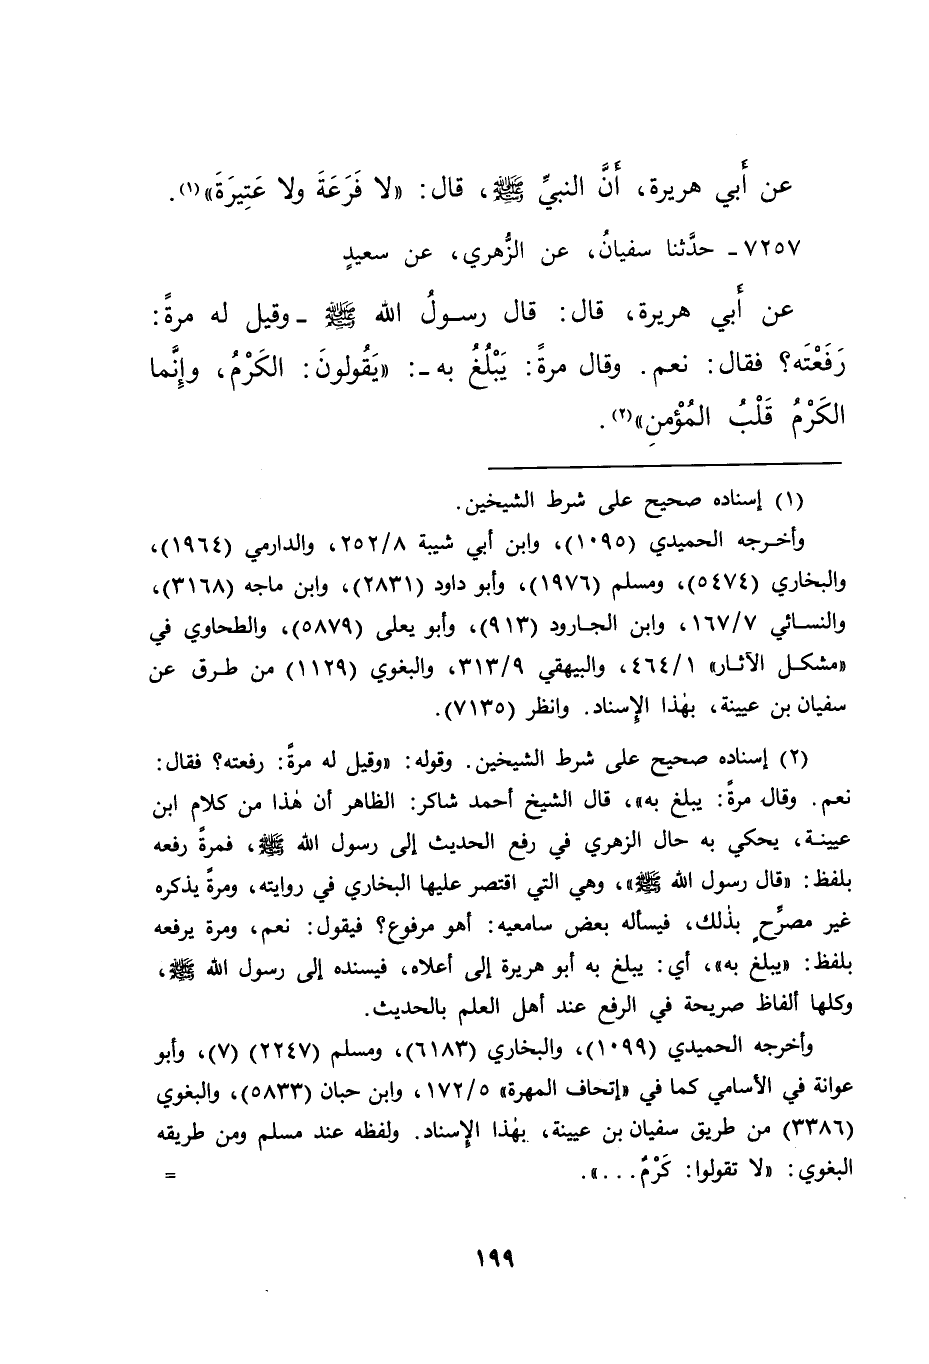 عن أَبي هريرة، أَنَّ النبيِّ ﷺ، قال: «لا فَرَعَةَ ولا عَتِيرَةَ»(١).
٧٢٥٧ـ حدَّثنا سفيانُ، عن الزُّهري، عن سعيدٍ
عن أَبي هريرة، قال: قال رسولُ الله ﷺ ـ وقيل له مرةً:
رَفَعْتَه؟ فقال: نعم. وقال مرةً: يَبْلُغُ به ـ: «يَقُولونَ: الكَرْمُ، وإِنَّما
الكَرْمُ قَلْبُ المُؤْمنِ»(٢).
(١) إسناده صحيح على شرط الشيخين.
وأخرجه الحميدي (١٠٩٥)، وابن أبي شيبة ٢٥٢/٨، والدارمي (١٩٦٤)،
والبخاري (٥٤٧٤)، ومسلم (١٩٧٦)، وأبو داود (٢٨٣١)، وابن ماجه (٣١٦٨)،
والنسائي ١٦٧/٧، وابن الجارود (٩١٣)، وأبو يعلى (٥٨٧٩)، والطحاوي في
«مشكل الآثار» ٤٦٤/١، والبيهقي ٣١٣/٩، والبغوي (١١٢٩) من طرق عن
سفيان بن عيينة، بهٰذا الإِسناد. وانظر (٧١٣٥).
(٢) إسناده صحيح على شرط الشيخين. وقوله: «وقيل له مرةً: رفعته؟ فقال:
نعم. وقال مرةً: يبلغ به»، قال الشيخ أحمد شاكر: الظاهر أن هٰذا من كلام ابن
عيينة، يحكي به حال الزهري في رفع الحديث إلى رسول الله ﷺ، فمرةً رفعه
بلفظ: «قال رسول الله ﷺ»، وهي التي اقتصر عليها البخاري في روايته، ومرةً يذكره
غير مصرِّحٍ بذٰلك، فيسأله بعض سامعيه: أهو مرفوع؟ فيقول: نعم، ومرة يرفعه
بلفظ: «يبلغ به»، أي: يبلغ به أبو هريرة إلى أعلاه، فيسنده إلى رسول الله ﷺ،
وكلها ألفاظ صريحة في الرفع عند أهل العلم بالحديث.
وأخرجه الحميدي (١٠٩٩)، والبخاري (٦١٨٣)، ومسلم (٢٢٤٧) (٧)، وأبو
عوانة في الأسامي كما في «إتحاف المهرة» ١٧٢/٥، وابن حبان (٥٨٣٣)، والبغوي
(٣٣٨٦) من طريق سفيان بن عيينة، بهٰذا الإِسناد. ولفظه عند مسلم ومن طريقه
البغوي: «لا تقولوا: كَرْمٌ...». =
١٩٩